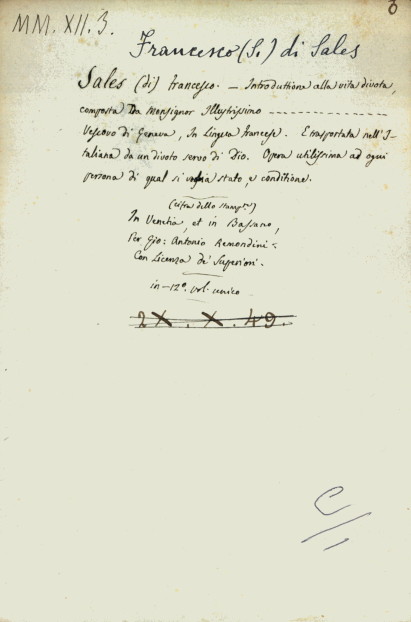 MM. XII. 3.
Francesco (S.) di Sales
Sales (di) Francesco. — Introduttione alla vita divota,
composta Da Monsignor Illustrissimo - - - - - - - - - - - - - -
Vescovo di Geneva, In Lingua francese. E trasportata nell'I-
taliana da un divoto servo di Dio. Opera utilissima ad ogni
persona di qual si voglia stato, e conditione.
(cifra dello stamp.)
In Venetia, et in Bassano,
Per Gio: Antonio Remondini:
Con Licenza de' Superiori.
in-12º. vol. unico
2X. X. 49.